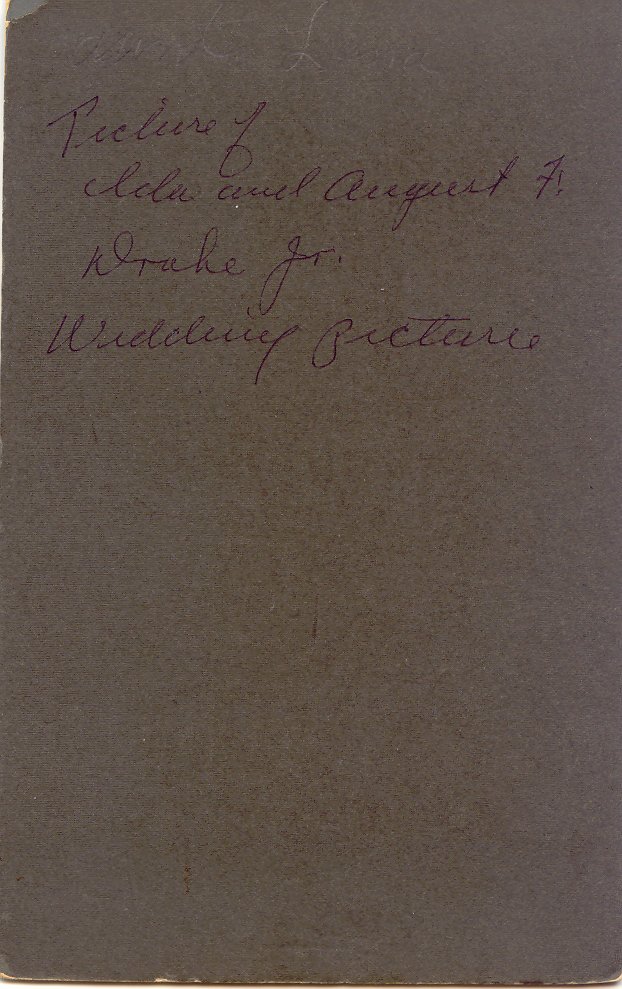 Picture of
Ida and August F.
Drake Jr.
Wedding Picture